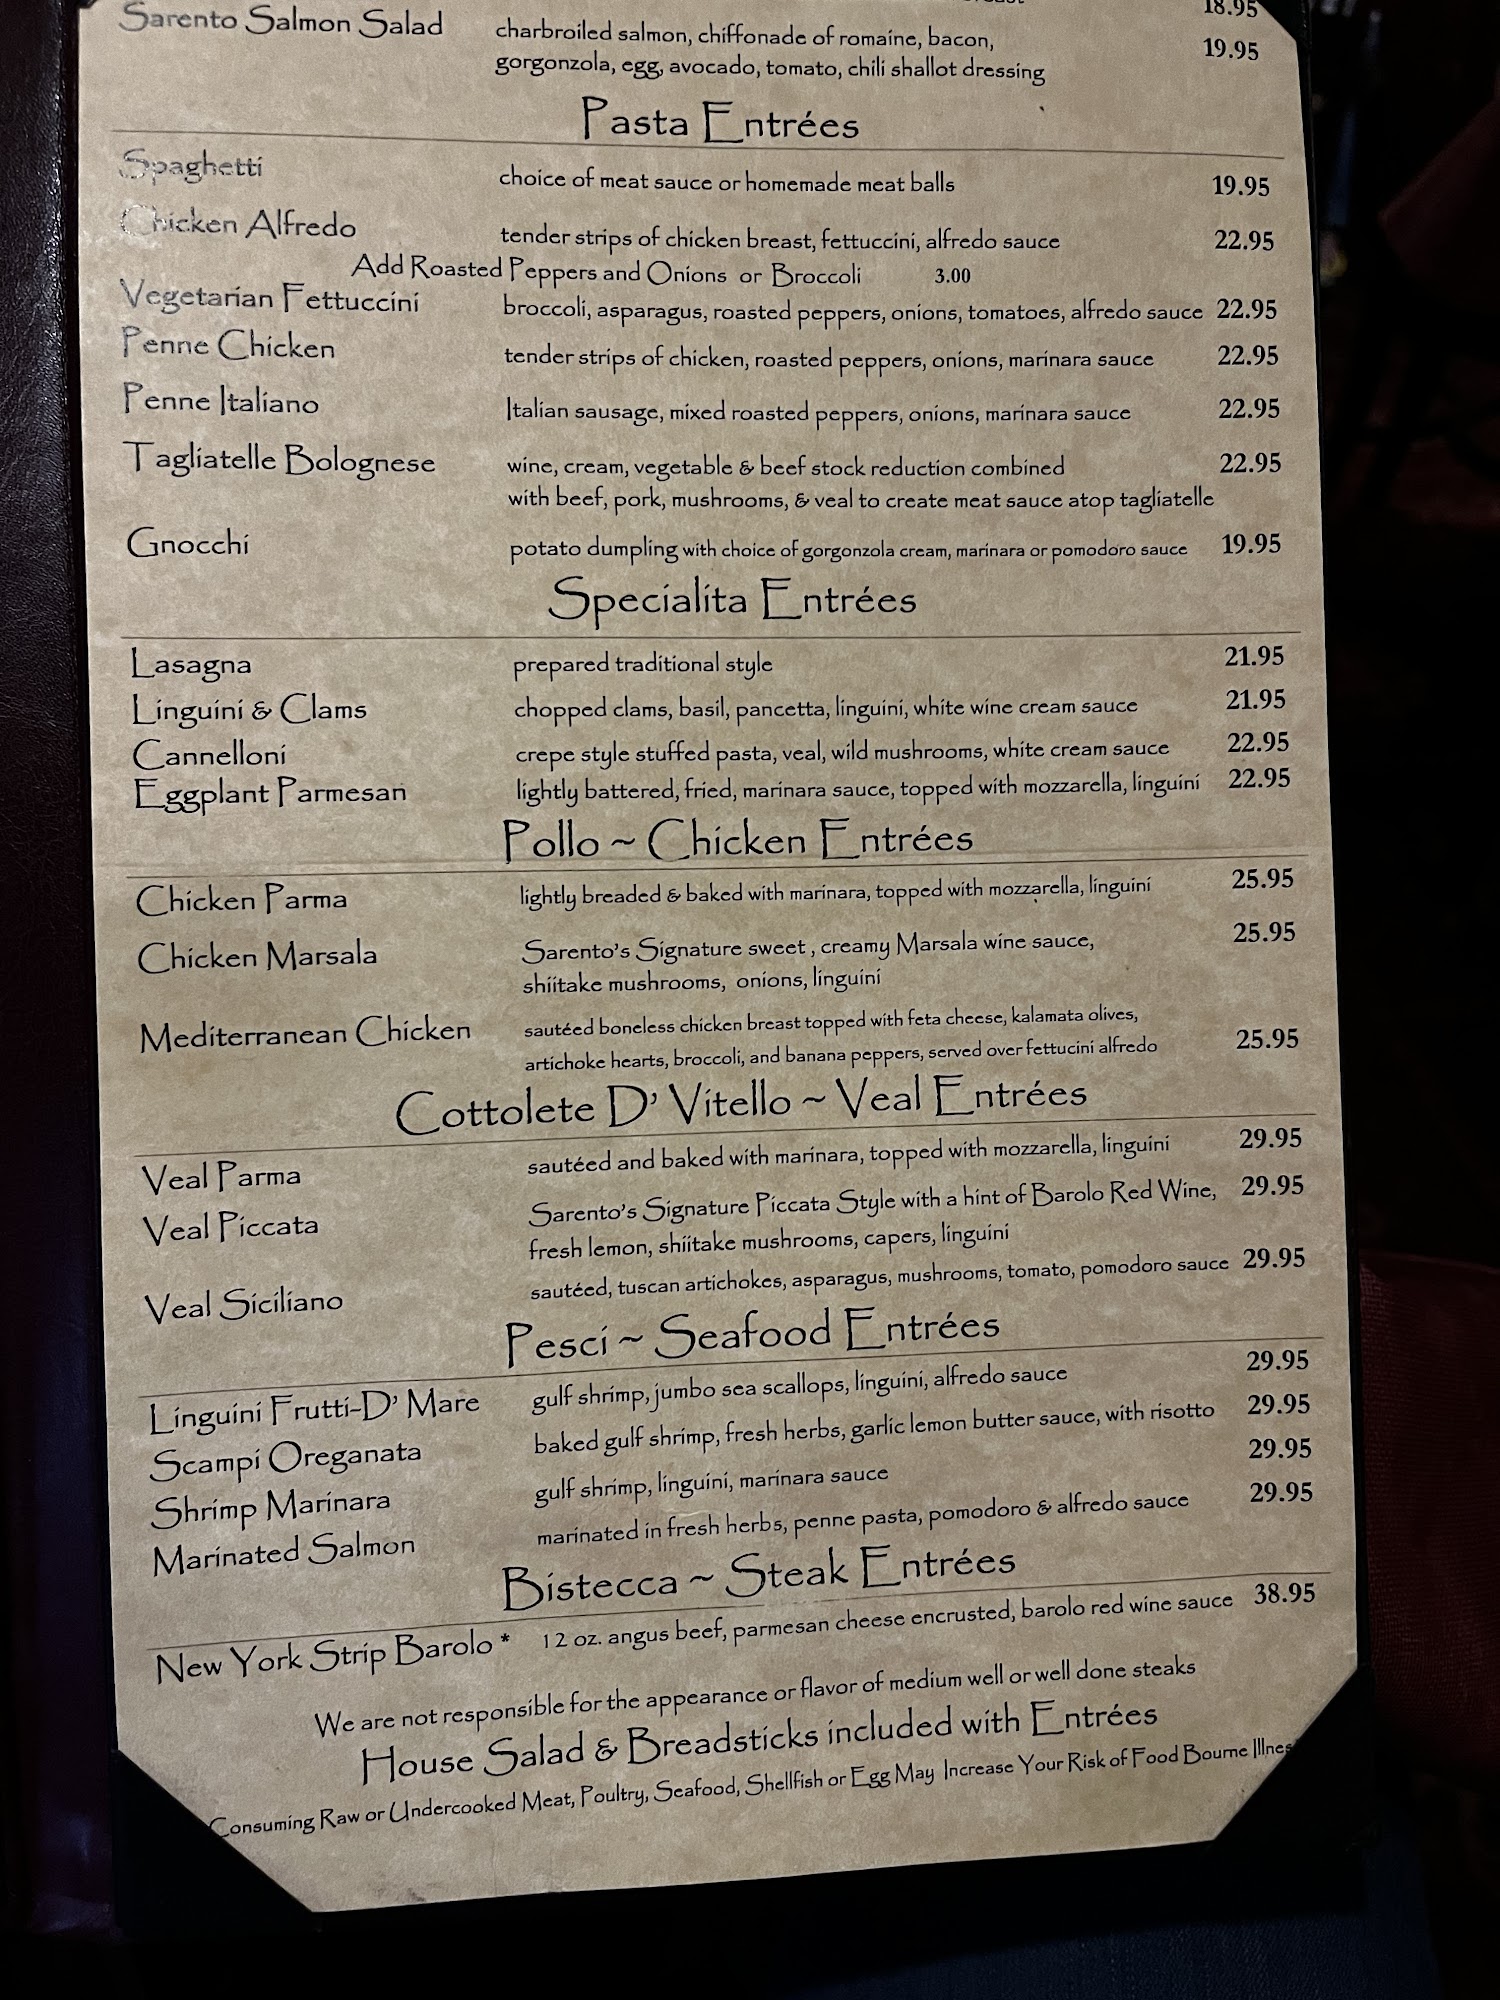 18.95
Sarento Salmon Salad charbroiled salmon, chiffonade of romaine, bacon, 19.95
gorgonzola, egg, avocado, tomato, chili shallot dressing
Pasta Entrées
Spaghetti choice of meat sauce or homemade meat balls 19.95
Chicken Alfredo tender strips of chicken breast, fettuccini, alfredo sauce 22.95
Add Roasted Peppers and Onions or Broccoli 3.00
Vegetarian Fettuccini broccoli, asparagus, roasted peppers, onions, tomatoes, alfredo sauce 22.95
Penne Chicken tender strips of chicken, roasted peppers, onions, marinara sauce 22.95
Penne Italiano Italian sausage, mixed roasted peppers, onions, marinara sauce 22.95
Tagliatelle Bolognese wine, cream, vegetable & beef stock reduction combined 22.95
with beef, pork, mushrooms, & veal to create meat sauce atop tagliatelle
Gnocchi potato dumpling with choice of gorgonzola cream, marinara or pomodoro sauce 19.95
Specialita Entrées
Lasagna prepared traditional style 21.95
Linguini & Clams chopped clams, basil, pancetta, linguini, white wine cream sauce 21.95
Cannelloni crepe style stuffed pasta, veal, wild mushrooms, white cream sauce 22.95
Eggplant Parmesan lightly battered, fried, marinara sauce, topped with mozzarella, linguini 22.95
Pollo ~ Chicken Entrées
Chicken Parma lightly breaded & baked with marinara, topped with mozzarella, linguini 25.95
Chicken Marsala Sarento's Signature sweet , creamy Marsala wine sauce, 25.95
shiitake mushrooms, onions, linguini
Mediterranean Chicken sautéed boneless chicken breast topped with feta cheese, kalamata olives,
artichoke hearts, broccoli, and banana peppers, served over fettucini alfredo 25.95
Cottolete D' Vitello ~ Veal Entrées
Veal Parma sautéed and baked with marinara, topped with mozzarella, linguini 29.95
Veal Piccata Sarento's Signature Piccata Style with a hint of Barolo Red Wine, 29.95
fresh lemon, shiitake mushrooms, capers, linguini
Veal Siciliano sautéed, tuscan artichokes, asparagus, mushrooms, tomato, pomodoro sauce 29.95
Pesci ~ Seafood Entrées
Linguini Frutti-D' Mare gulf shrimp, jumbo sea scallops, linguini, alfredo sauce 29.95
Scampi Oreganata baked gulf shrimp, fresh herbs, garlic lemon butter sauce, with risotto 29.95
Shrimp Marinara gulf shrimp, linguini, marinara sauce 29.95
Marinated Salmon marinated in fresh herbs, penne pasta, pomodoro & alfredo sauce 29.95
Bistecca ~ Steak Entrées
New York Strip Barolo * 12 oz. angus beef, parmesan cheese encrusted, barolo red wine sauce 38.95
We are not responsible for the appearance or flavor of medium well or well done steaks
House Salad & Breadsticks included with Entrées
Consuming Raw or Undercooked Meat, Poultry, Seafood, Shellfish or Egg May Increase Your Risk of Food Bourne Illnes